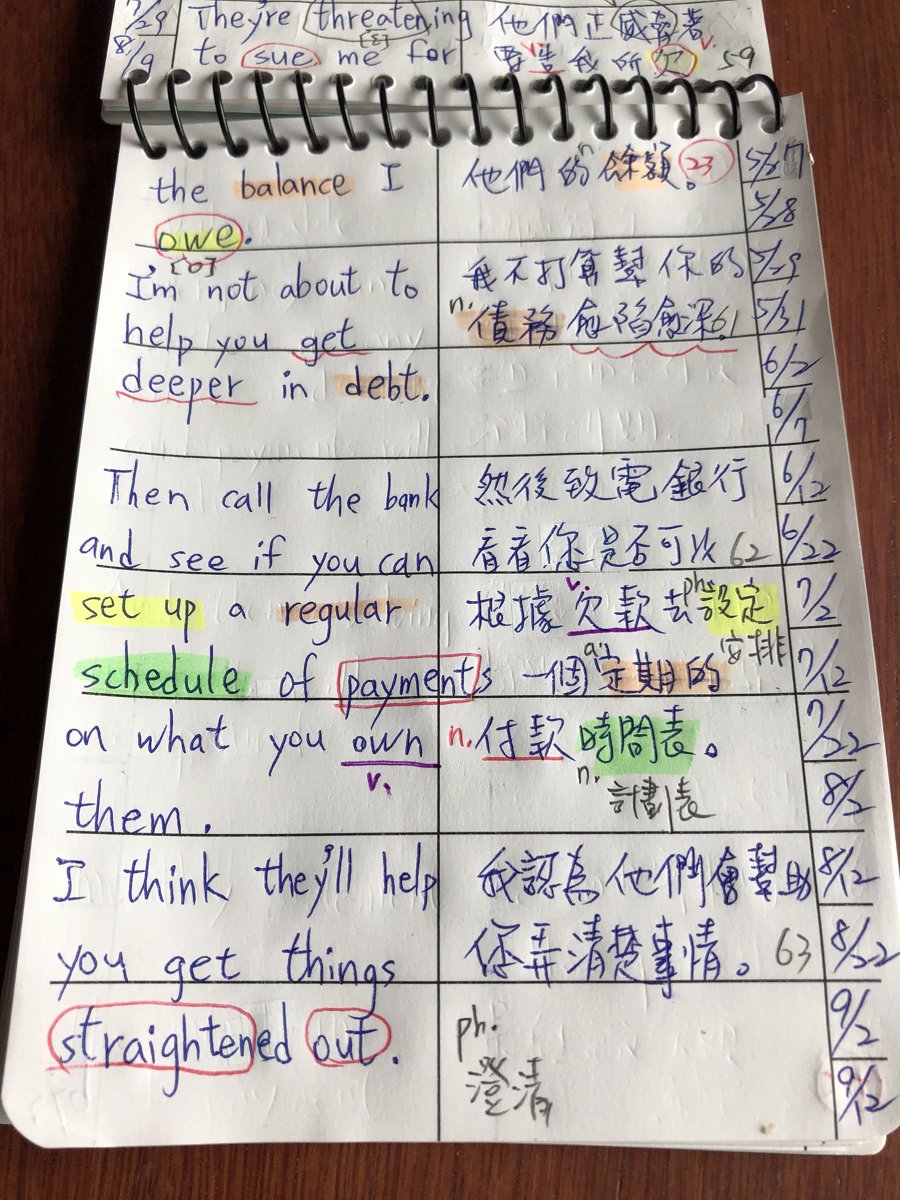 7/29 They're threatening 他們正威脅著
[ε]
8/9 to sue me for 要告我所欠 59
v. v.
the balance I 他們的餘額。 23 5/27
n.
owe. 5/28
[o]
I'm not about to 我不打算幫你的 5/29
help you get 債務愈陷愈深 61 5/31
n.
deeper in debt. 6/2
6/7
Then call the bank 然後致電銀行 6/12
and see if you can 看看您是否可以 62 6/22
set up a regular 根據欠款去設定 7/2
v. ph. 安排
schedule of payments 一個定期的 7/12
a.
on what you own n. 付款時間表。 7/22
v. n. 計劃表
them. 8/2
I think they'll help 我認為他們會幫助 8/12
you get things 你弄清楚事情。 63 8/22
straightened out. ph. 9/2
澄清 9/12